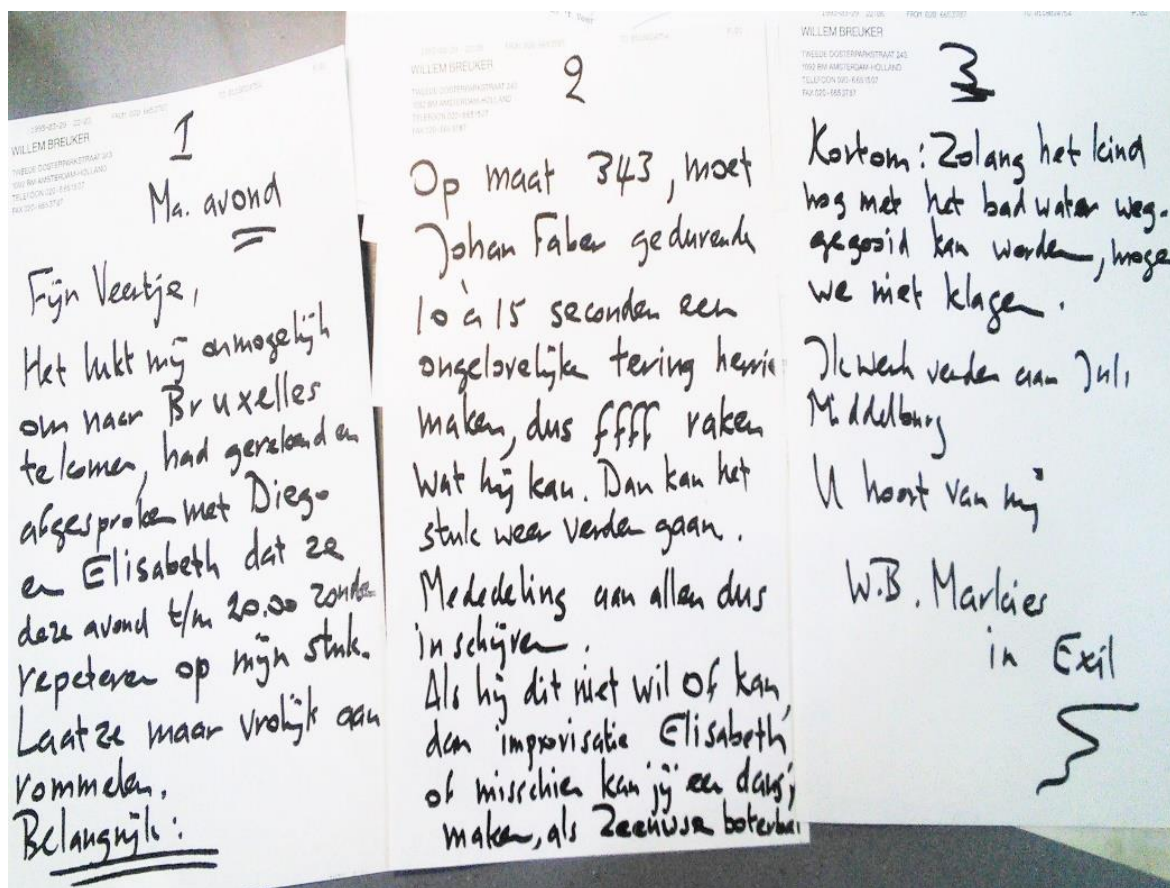 WILLEM BREUKER
TWEEDE OOSTERPARKSTRAAT 243
1092 BM AMSTERDAM-HOLLAND
TELEFOON 020-6651507
FAX 020-6653787
I
Ma. avond
Fijn Veertje,
Het lukt mij onmogelijk
om naar Bruxelles
te komen, had gerekend en
afgesproken met Diego
en Elisabeth dat ze
deze avond t/m 20.00 zonder
repeteren op mijn stuk.
Laat ze maar vrolijk aan
rommelen.
Belangrijk:
WILLEM BREUKER
TWEEDE OOSTERPARKSTRAAT 243
1092 BM AMSTERDAM-HOLLAND
TELEFOON 020-6651507
FAX 020-6653787
2
Op maat 343, moet
Johan Faber gedurende
10 à 15 seconden een
ongelovelijke tering herrie
maken, dus ffff raken
wat hij kan. Dan kan het
stuk weer verder gaan.
Mededeling aan allen dus
inschijven.
Als hij dit niet wil of kan,
dan improvisatie Elisabeth
of misschien kan jij een dansj
maken, als Zeeuwse boterbai
WILLEM BREUKER
TWEEDE OOSTERPARKSTRAAT 243
1092 BM AMSTERDAM-HOLLAND
TELEFOON 020-6651507
FAX 020-6653787
3
Kortom: Zolang het kind
nog met het badwater weg-
gegooid kan worden, moge
we niet klagen.
Ik werk verder aan Juli
Middelburg
U hoort van mij
W.B. Markies
in Exil